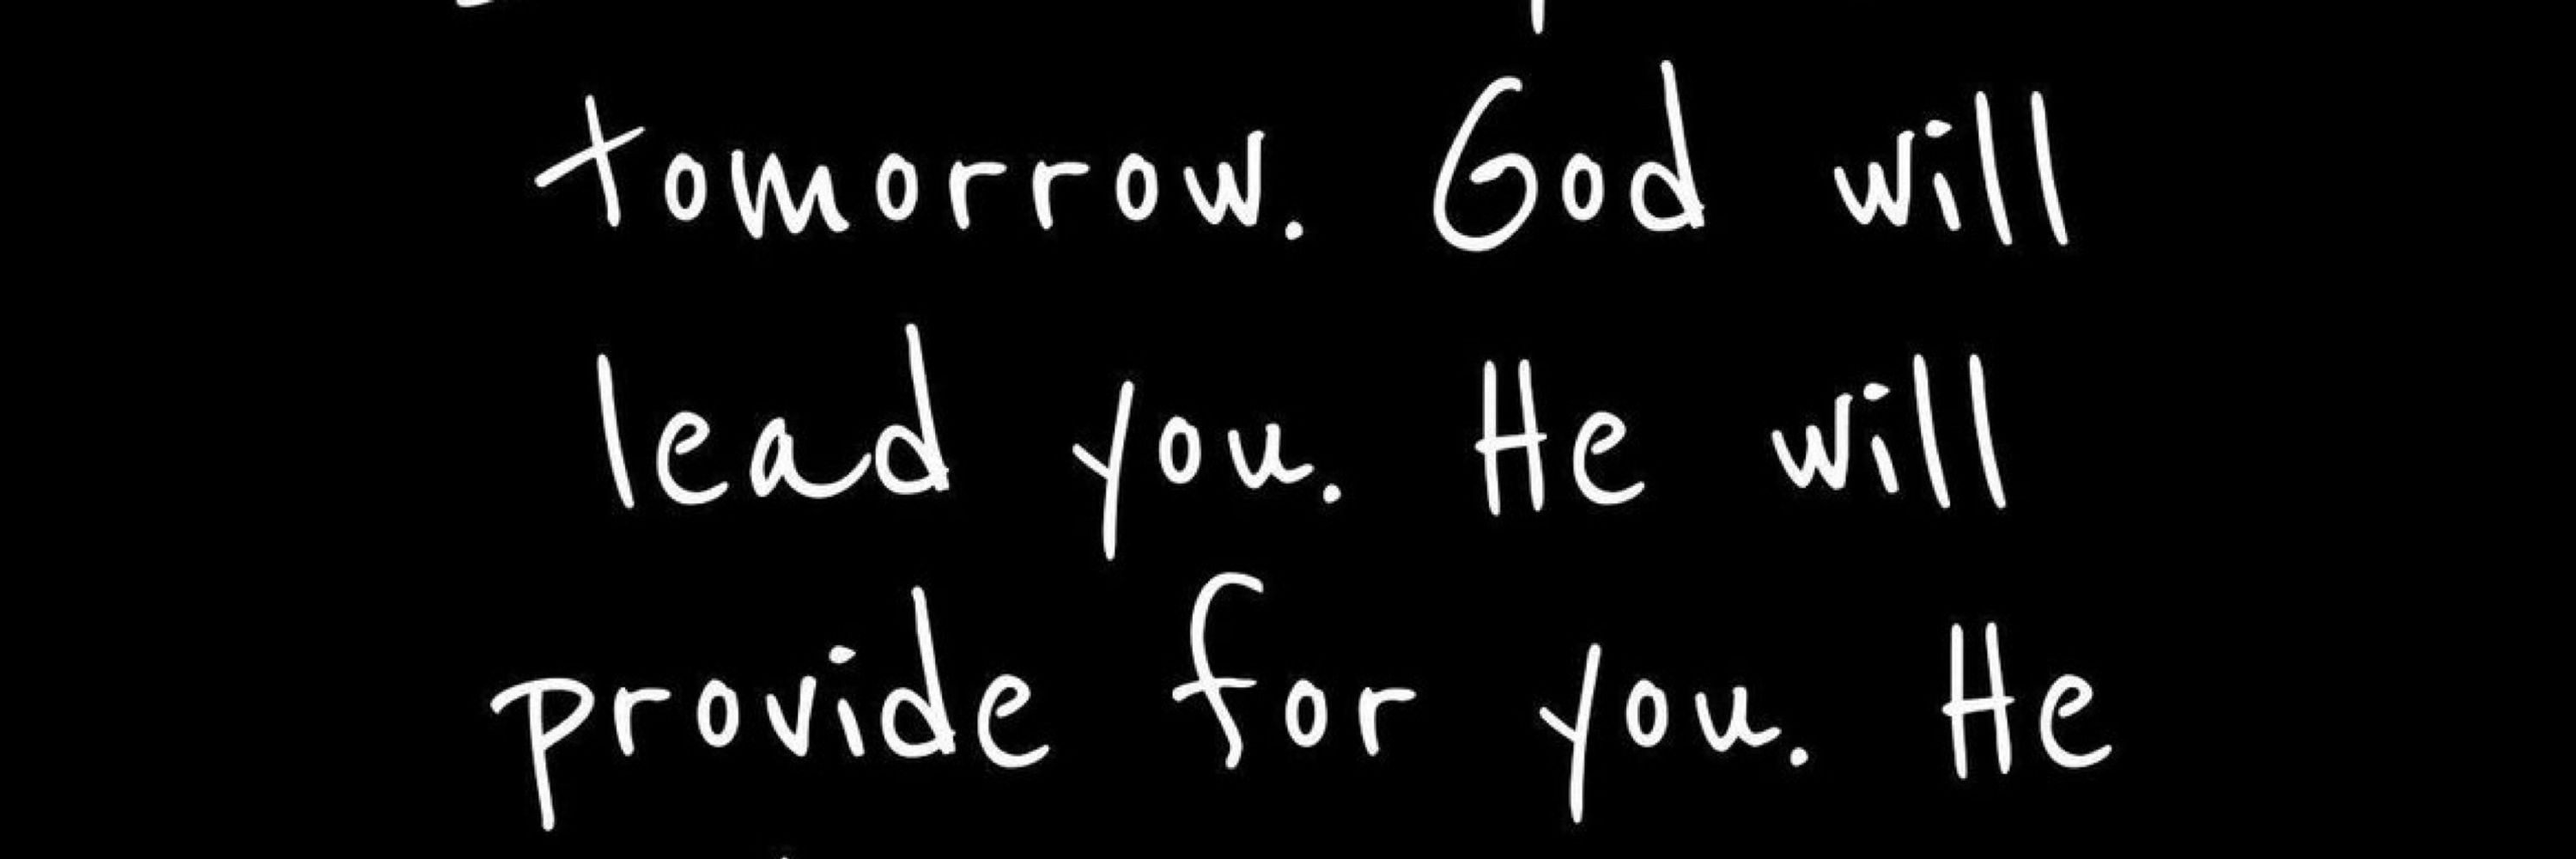 tomorrow. God will
lead you. He will
provide for you. He